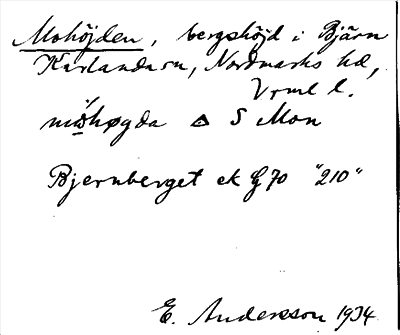 Mohöjden, bergshöjd i Björn
Karlanda sn, Nordmarks hd,
Vrml l.
mo̱høgda △ S Mon
Bjernberget ek G 70 "210"
E. Andersson 1934